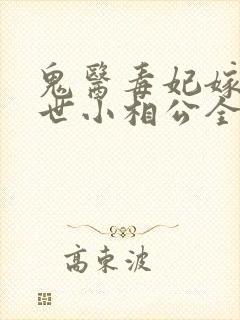 鬼醫毒妃嫁
世小相公全
高東波